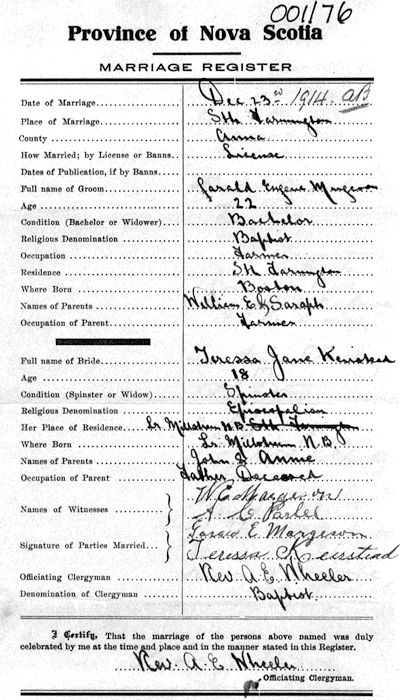 001/76
Province of Nova Scotia
MARRIAGE REGISTER
Date of Marriage Dec 23rd 1914
Place of Marriage Sth Farmington
County Anna
How Married; by License or Banns License
Dates of Publication, if by Banns
Full name of Groom Garald Eugene Margeson
Age 22
Condition (Bachelor or Widower) Bachelor
Religious Denomination Baptist
Occupation Farmer
Residence Sth Farmington
Where Born Boston
Names of Parents William E & Saraph
Occupation of Parent Farmer
Full name of Bride Teressa Jane Keirstead
Age 18
Condition (Spinster or Widow) Spinster
Religious Denomination Episcopalian
Her Place of Residence Lr Millstream N.B. Sth Farmington
Where Born Lr Millstream N.B.
Names of Parents John & Annie
Occupation of Parent Father Deceased
Names of Witnesses W E Margeson
A C
Signature of Parties Married Garald E Margeson
Teressa Keirstead
Officiating Clergyman Rev A. E. Wheeler
Denomination of Clergyman Baptist
I Certify, That the marriage of the persons above named was duly
celebrated by me at the time and place and in the manner stated in this Register.
Rev. A. E. Wheeler
Officiating Clergyman.